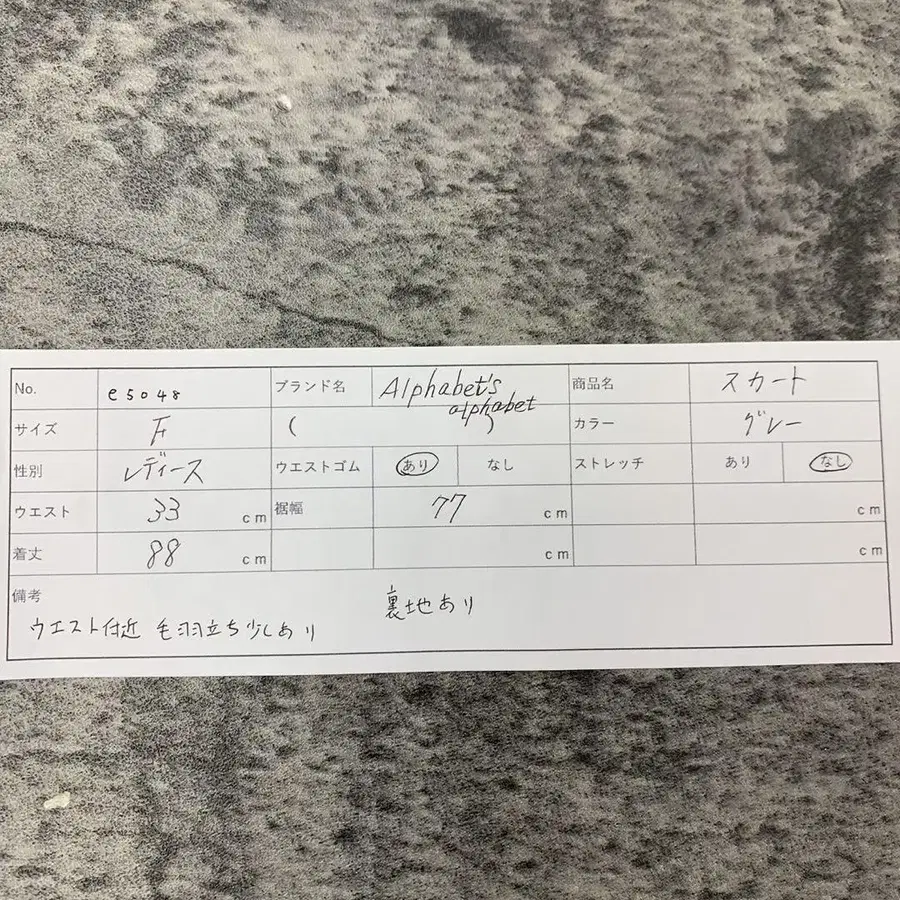 No. e5048 ブランド名 Alphabet's alphabet 商品名 スカート
サイズ F ( ) カラー グレー
性別 レディース ウエストゴム あり なし ストレッチ あり なし
ウエスト 33 cm 裾幅 77 cm cm
着丈 88 cm cm cm
備考
裏地あり
ウエスト付近 毛羽立ち少しあり